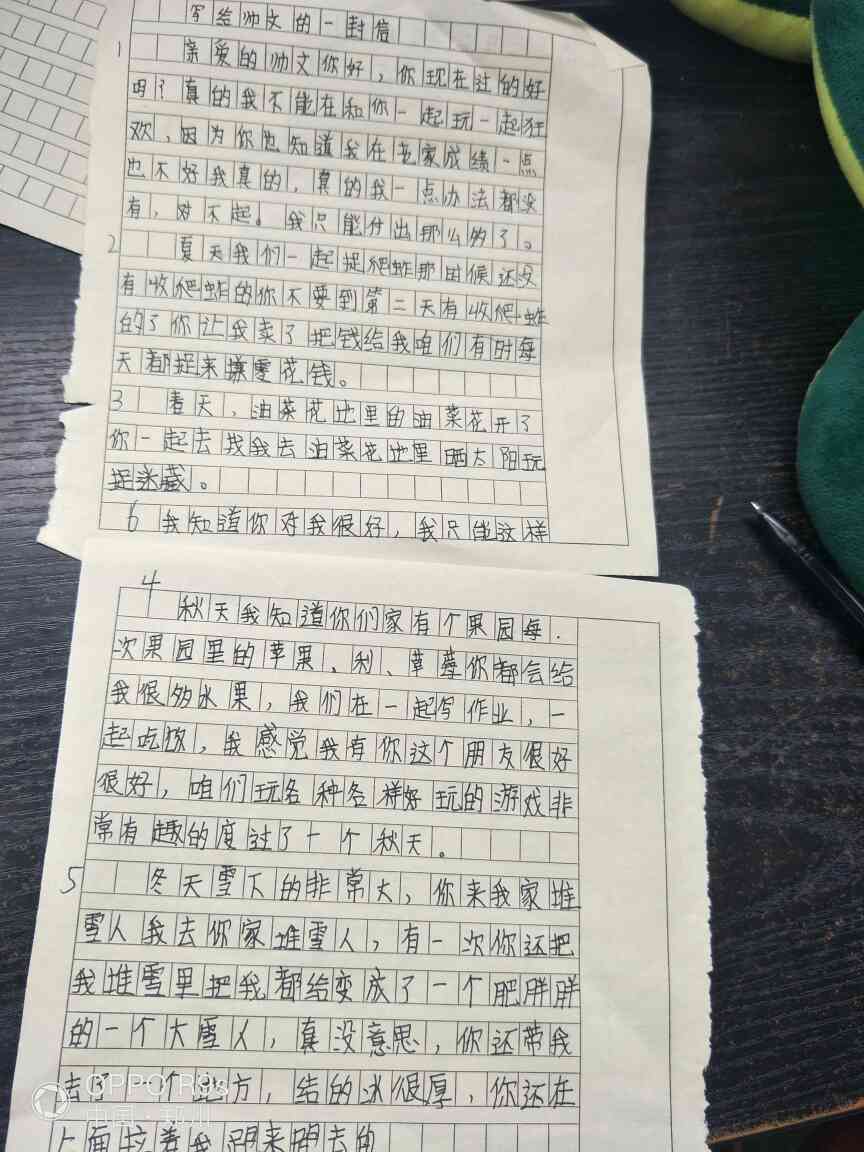 写给帅文的一封信
1
亲爱的帅文你好，你现在过的好
吗？真的我不能在和你一起玩一起狂
欢，因为你也知道我在老家成绩一点
也不好我真的，真的我一点办法都没
有，对不起。我只能付出那么多了。
2
夏天我们一起捉爬蚱那时候还没
有收爬蚱的你不要到第二天有收爬蚱
的了你让我卖了把钱给我咱们有时每
天都捉来赚零花钱。
3 春天，油菜花地里的油菜花开了
你一起去找我去油菜花地里晒太阳玩
捉迷藏。
6 我知道你对我很好，我只能这样
4
秋天我知道你们家有个果园每
次果园里的苹果、利、草莓你都会给
我很多水果，我们在一起写作业，一
起吃放，我感觉我有你这个朋友很好
很好，咱们玩各种各样好玩的游戏非
常有趣的度过了一个秋天。
5
冬天雪下的非常大，你来我家堆
雪人我去你家堆雪人，有一次你还把
我堆雪里把我都给变成了一个肥胖胖
的一个大雪人，真没意思，你还带我
去了一个地方，结的冰很厚，你还在
上面拉着我跑来跑去的
OPPO R9s
中国·郑州